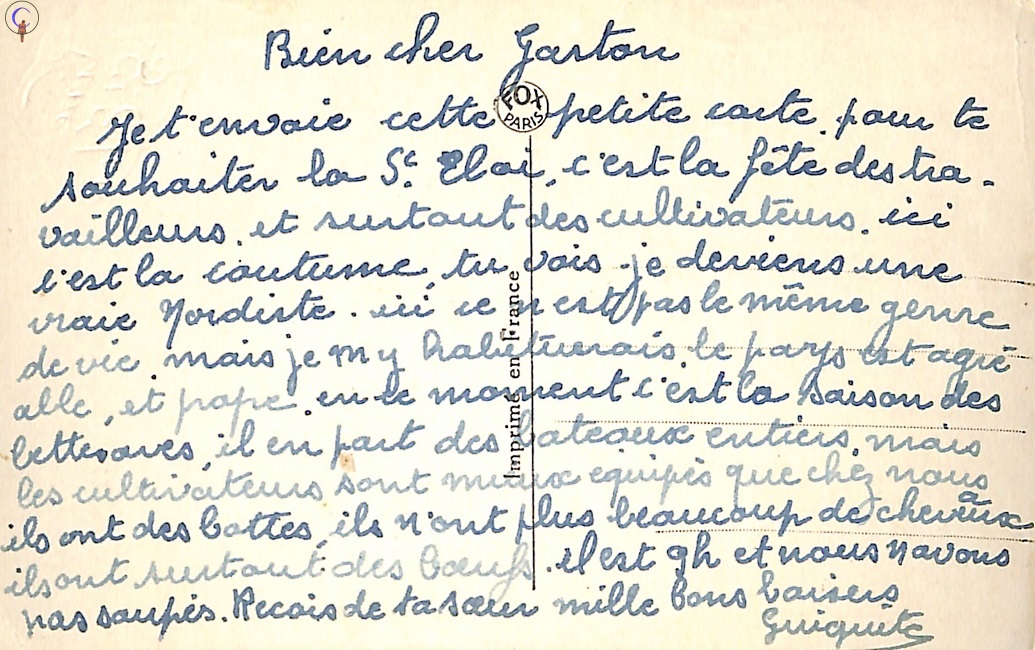 Bien cher Gaston
FOX
PARIS
Je t'envoie cette petite carte pour te
souhaiter la St. Eloi, c'est la fête des tra-
vailleurs, et surtout des cultivateurs. ici
c'est la coutume, tu vois je deviens une
vraie Nordiste. ici ce n'est pas le même genre
de vie, mais je m'y le pays est agré
able, et en ce moment c'est la saison des
betteraves, il en part des bateaux entiers, mais
les cultivateurs sont mieux équipés que chez nous
ils ont des bottes, ils n'ont plus beaucoup de chevaux
ils ont surtout des bœufs. il est 9h et nous navons
pas soupés. Recois de ta sœur mille bons baisers
Guiguite
Imprimé en France